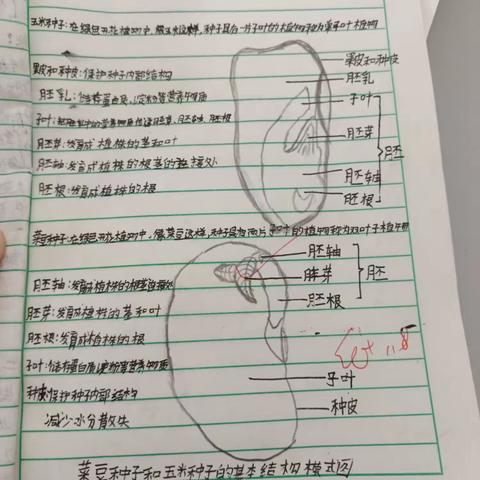 玉米种子:在绿色开花植物中,像玉米这样,种子具有一片子叶的植物称为单子叶植物
果皮和种皮
果皮和种皮:保护种子内部结构
胚乳
胚乳:储存蛋白质、淀粉等营养物质
子叶
子叶:把胚乳中的营养物质传递给胚芽、胚轴、胚根
胚芽
胚芽:发育成植株的茎和叶
胚
胚轴:发育成植株的根茎的连接处
胚轴
胚根:发育成植株的根
胚根
菜豆种子:在绿色开花植物中,像菜豆这样,种子具有两片子叶的植物称为双子叶植物
胚轴
胚芽
胚
胚轴:发育成植株的根茎连接处
胚根
胚芽:发育成植株的茎和叶
胚根:发育成植株的根
子叶:储存蛋白质淀粉等营养物质
子叶
种皮:保护种子内部结构
种皮
减少水分散失
菜豆种子和玉米种子的基本结构模式图